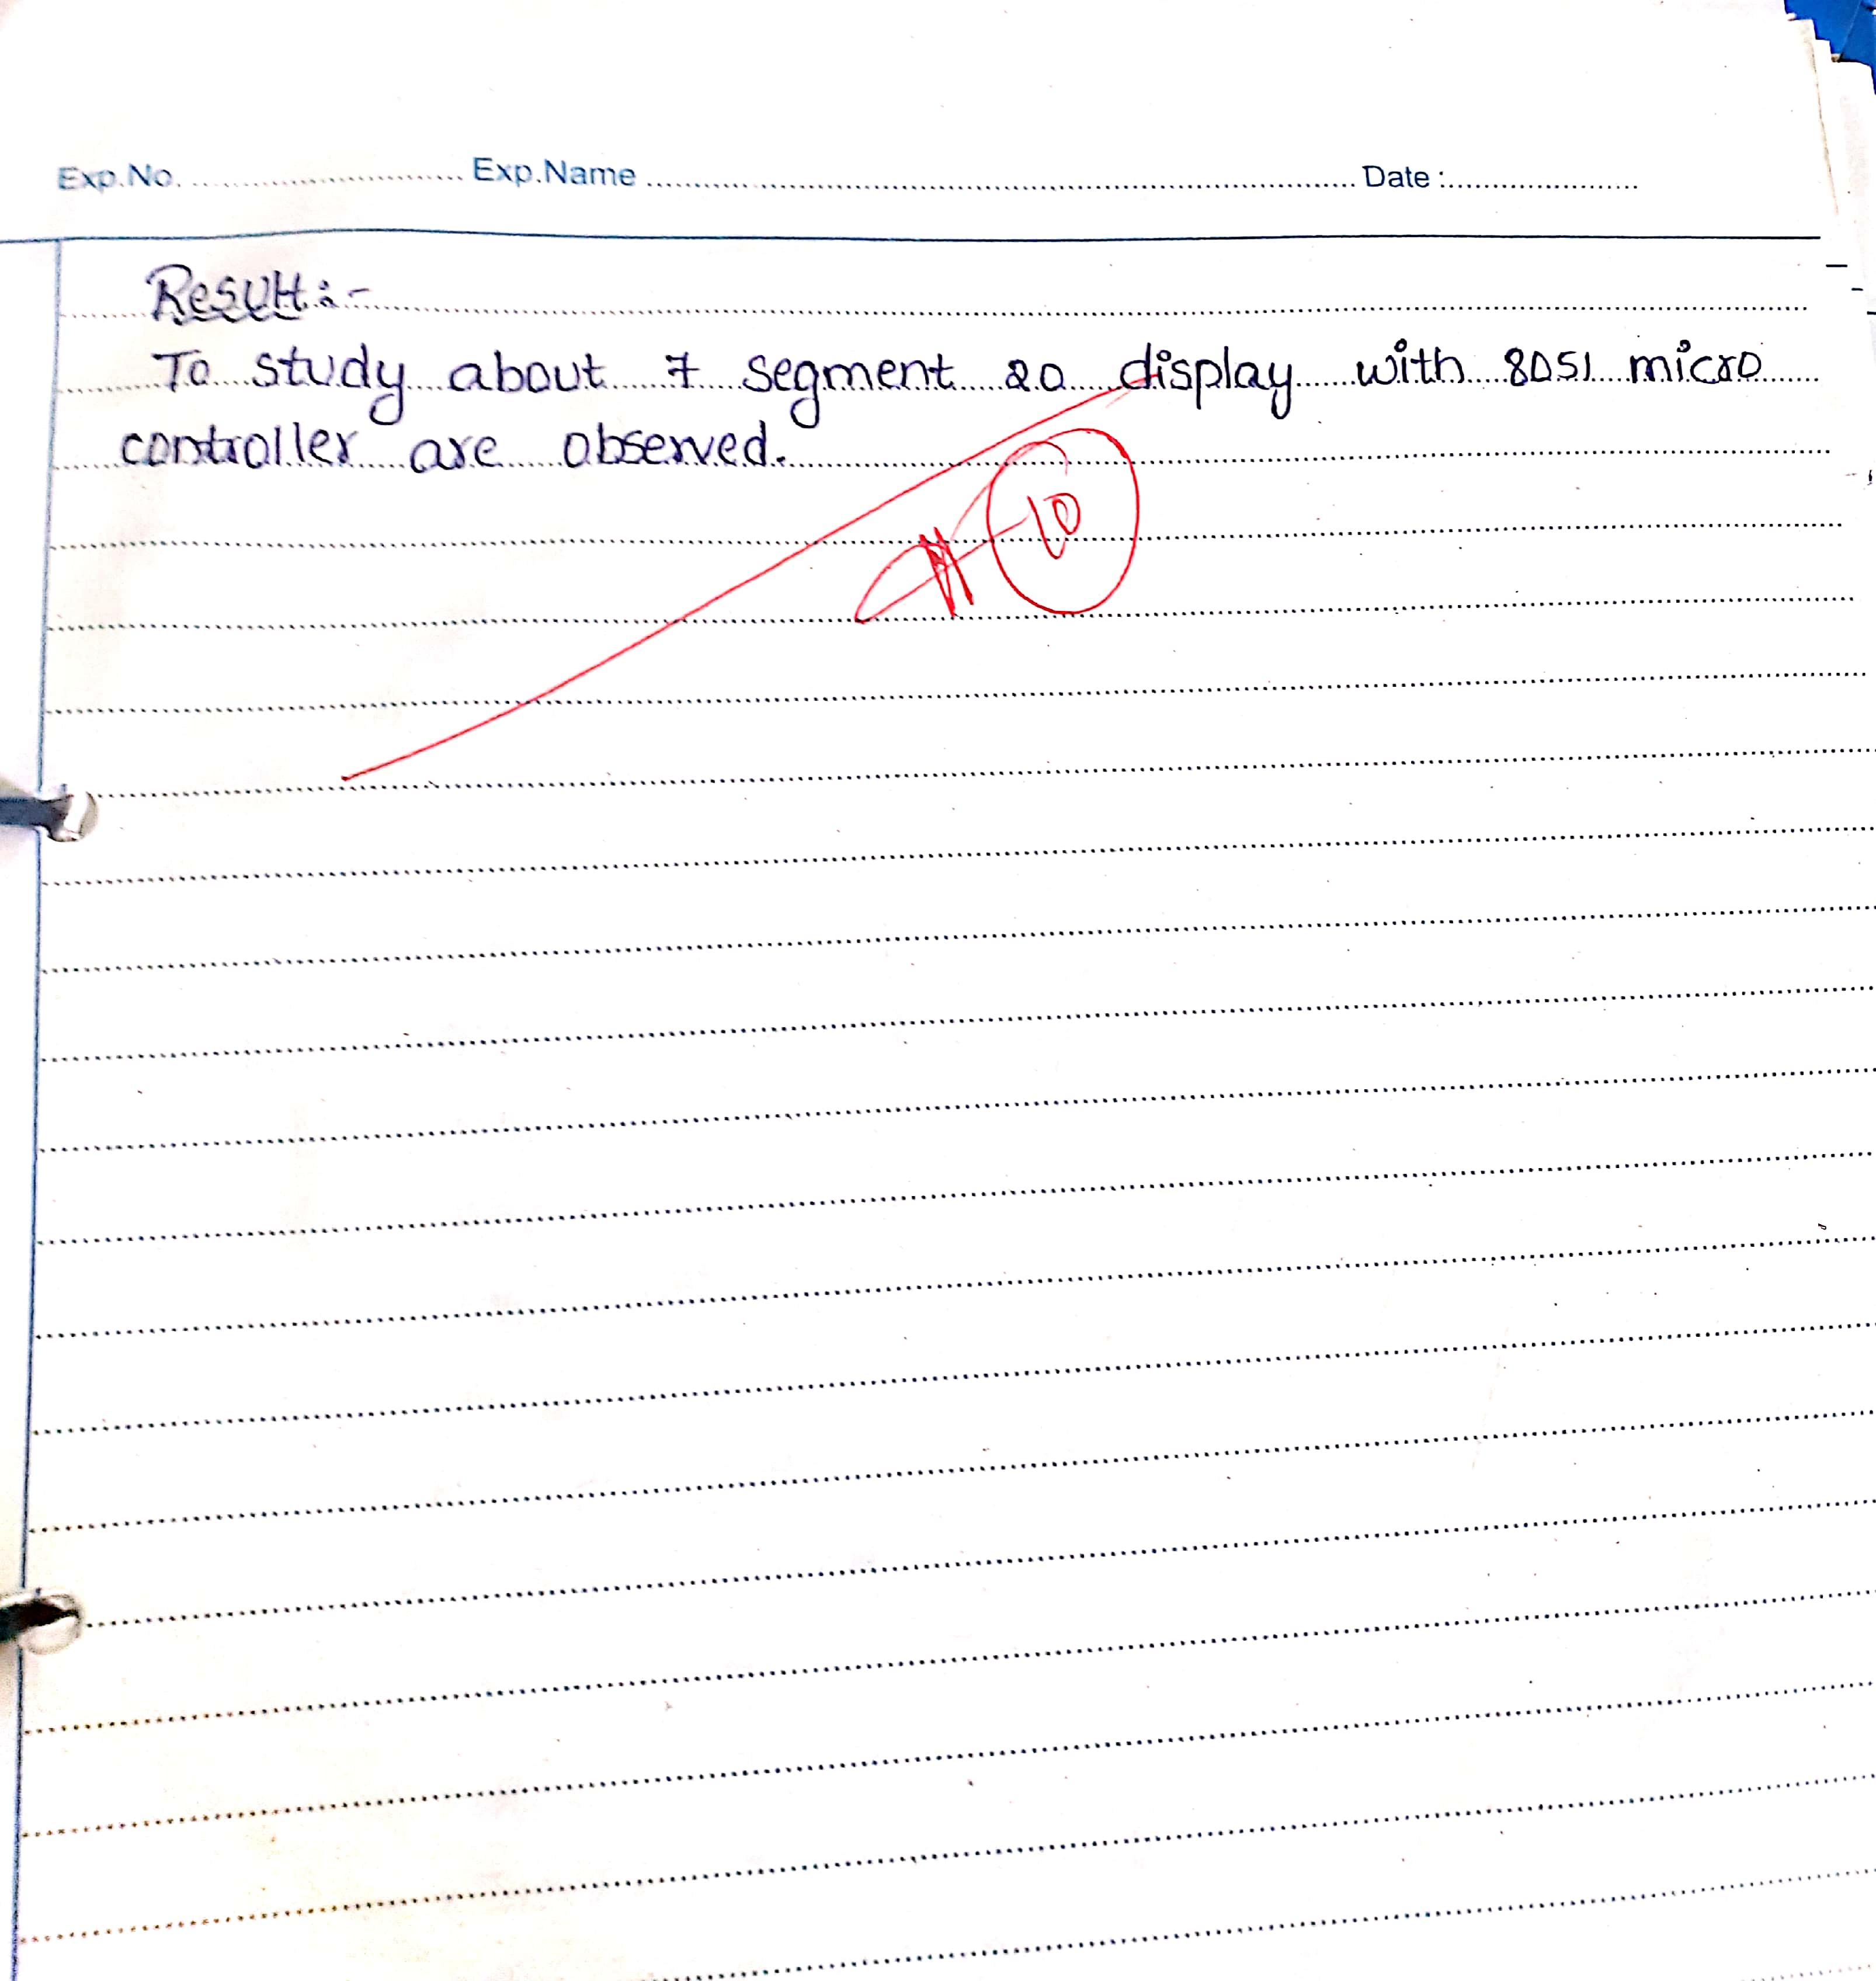 Exp.No. .............................. Exp.Name .................................................................................. Date :......................
Result:-
To study about 7 segment 20 display with 8051 micro
controller are observed.
10